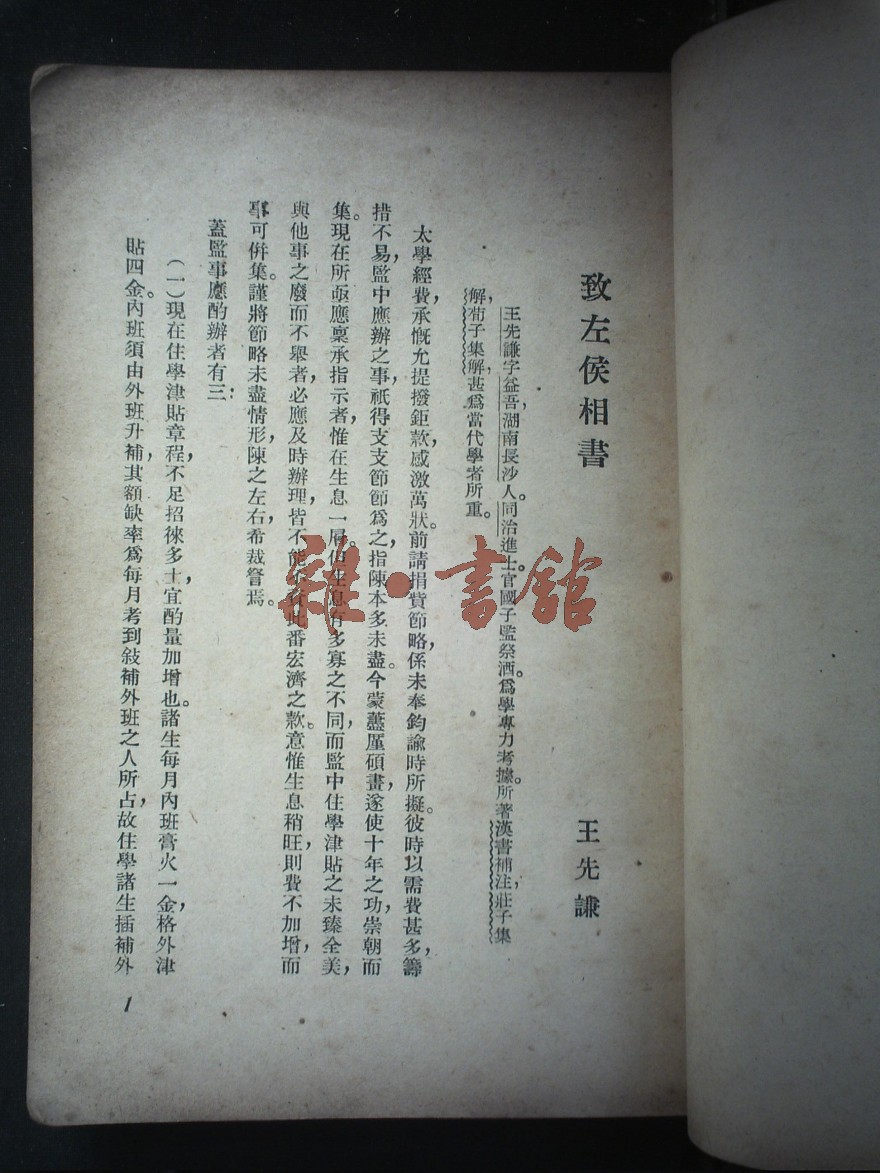 致左侯相書
王先謙
王先謙字益吾，湖南長沙人。同治進士。官國子監祭酒。爲學專力考據。所著漢書補注，莊子集
解，荀子集解甚爲當代學者所重。
太學經費，承慨允提撥鉅款，感激萬狀。前請捐貲節略，係未奉鈞諭時所擬。彼時以需費甚多，籌
措不易，監中應辦之事，祇得支支節節爲之，指陳本多未盡。今蒙藎厪碩畫，遂使十年之功，崇朝而
集。現在所亟應稟承指示者，惟在生息一層。但生息有多寡之不同，而監中住學津貼之未臻全美，
與他事之廢而不舉者，必應及時辦理，皆不能 此番宏濟之款。意惟生息稍旺，則費不加增，而
事可併集。謹將節略未盡情形，陳之左右，希裁詧焉。
蓋監事應酌辦者有三：
（一）現在住學津貼章程，不足招徠多士，宜酌量加增也。諸生每月內班膏火一金，格外津
貼四金。內班須由外班升補，其額缺率爲每月考到敍補外班之人所占，故住學諸生插補外
1
雜·書館